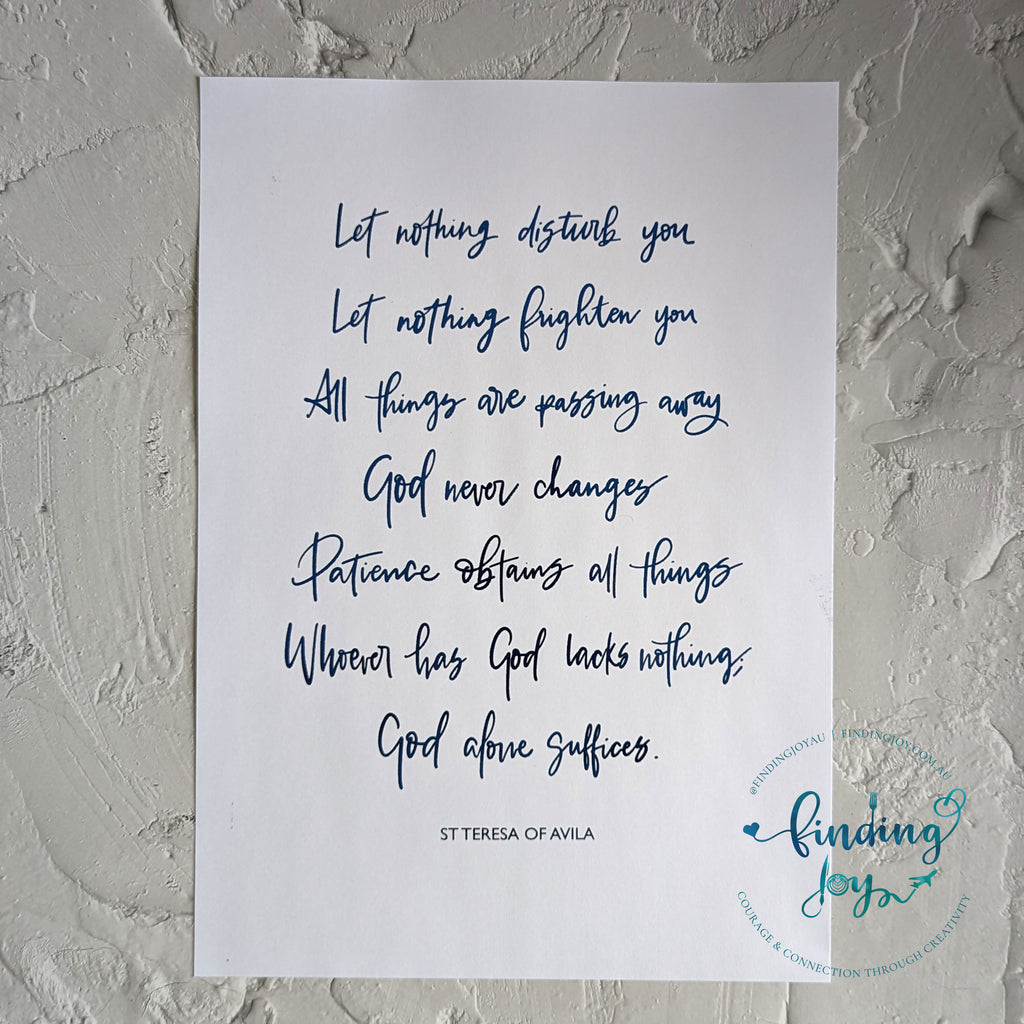 Let nothing disturb you
Let nothing frighten you
All things are passing away
God never changes
Patience obtains all things
Whoever has God lacks nothing;
God alone suffices.
ST TERESA OF AVILA
@FINDINGJOYAU | FINDINGJOY.COM.AU
finding
Joy
COURAGE & CONNECTION THROUGH CREATIVITY